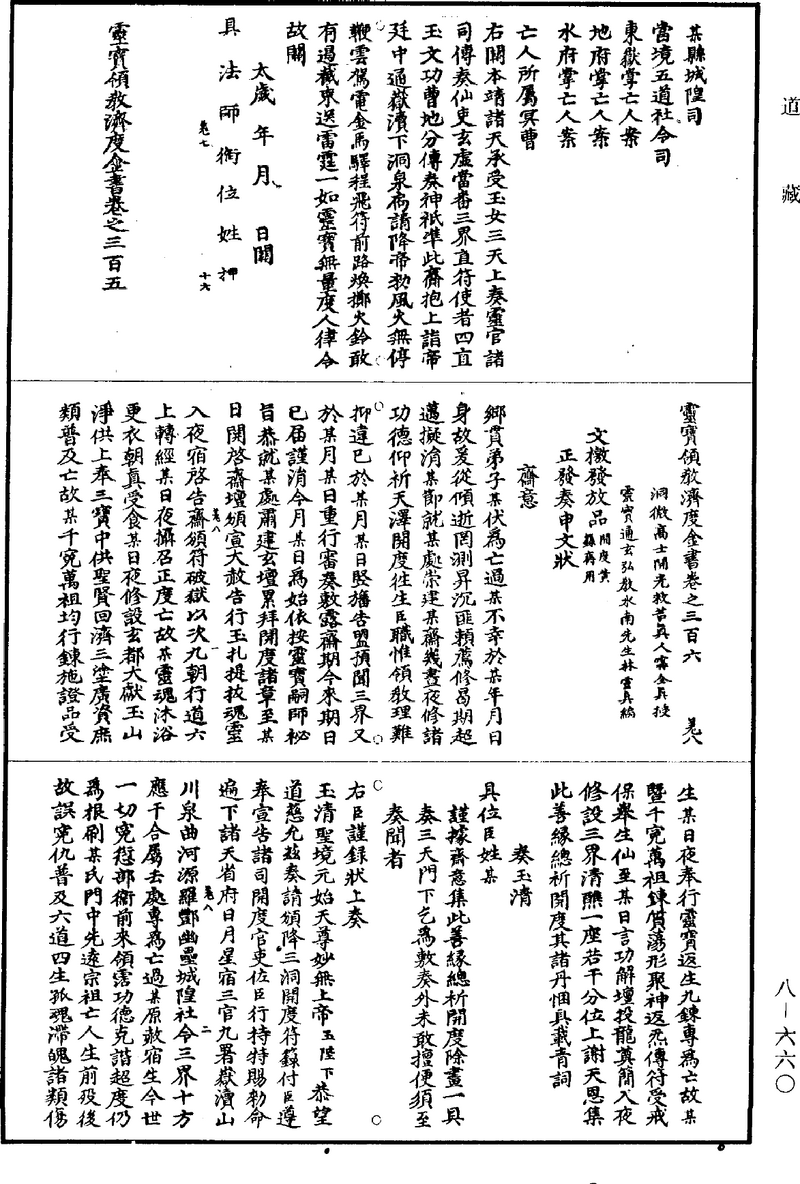 道藏
某縣城隍司
當境五道社令司
東嶽掌亡人案
地府掌亡人案
水府掌亡人案
亡人所屬冥曹
右關本靖諸天承受玉女三天上奏靈官諸
司傳奏仙吏玄虛當番三界直符使者四直
玉文功曹地分傳奏神祇準此齋抱上詣帝
廷中通嶽瀆下洞泉扃請降帝勑風火無停
鞭雲駕電金馬驛程飛符前路煥擲火鈴敢
有遏截束送雷霆一如靈寶無量度人律令
故關
太歲年月日關
具法師銜位姓押
卷七 十六
靈寶領教濟度金書卷之三百五
靈寶領教濟度金書卷之三百六 卷八
洞微高士開光救苦真人甯全真授
靈寶通玄弘教水南先生林靈真編
文檄發放品
正發奏申文狀
齋意
鄉貫弟子某伏為亡過某不幸於某年月日
身故爰從傾逝罔測昇沉匪賴薦修曷期超
邁擬消某節就某處崇建某齋幾晝夜修諸
功德仰祈天澤開度徃生臣職惟領教理難
抑違已於某月某日豎旛告盟預聞三界又
於某月某日重行審奏敷露齋期今來期日
已屆謹消今月某日為始依按靈寶嗣師祕
旨恭就某處肅建玄壇累拜開度諸章至某
日開啓齋壇頒宣大赦告行玉札提拔魂靈
卷八 一
入夜宿啓告齋頒符破獄以次九朝行道六
上轉經某日夜攝召正度亡故某靈魂沐浴
更衣朝真受食某日夜修設玄都大獻玉山
淨供上奉三寶中供聖賢回濟三塗廣資庶
類普及亡故某千冤萬祖均行鍊施證品受
生某日夜奉行靈寶返生九鍊專為亡故某
暨千冤萬祖鍊質蕩形聚神返炁傳符受戒
保舉生仙至某日言功解壇投龍奠簡入夜
修設三界清醮一座若干分位上謝天恩集
此善緣總祈開度其諸丹悃具載青詞
奏玉清
具位臣姓某
謹據齋意集此善緣總祈開度除畫一具
奏三天門下乞為敷奏外未敢擅便須至
奏聞者
右臣謹錄狀上奏
玉清聖境元始天尊妙無上帝玉陛下恭望
道慈允茲奏請頒降三洞開度符籙付臣遵
奉宣告諸司開度官吏佐臣行持特賜勑命
遍下諸天省府日月星宿三官九署嶽瀆山
卷八 二
川泉曲河源羅酆幽壘城隍社令三界十方
應千合屬去處專為亡過某原赦宿生今世
一切冤愆部衛前來領霑功德克諧超度仍
為根刷某氏門中先遠宗祖亡人生前歿後
故誤冤仇普及六道四生孤魂滯魄諸類傷
八—六六〇